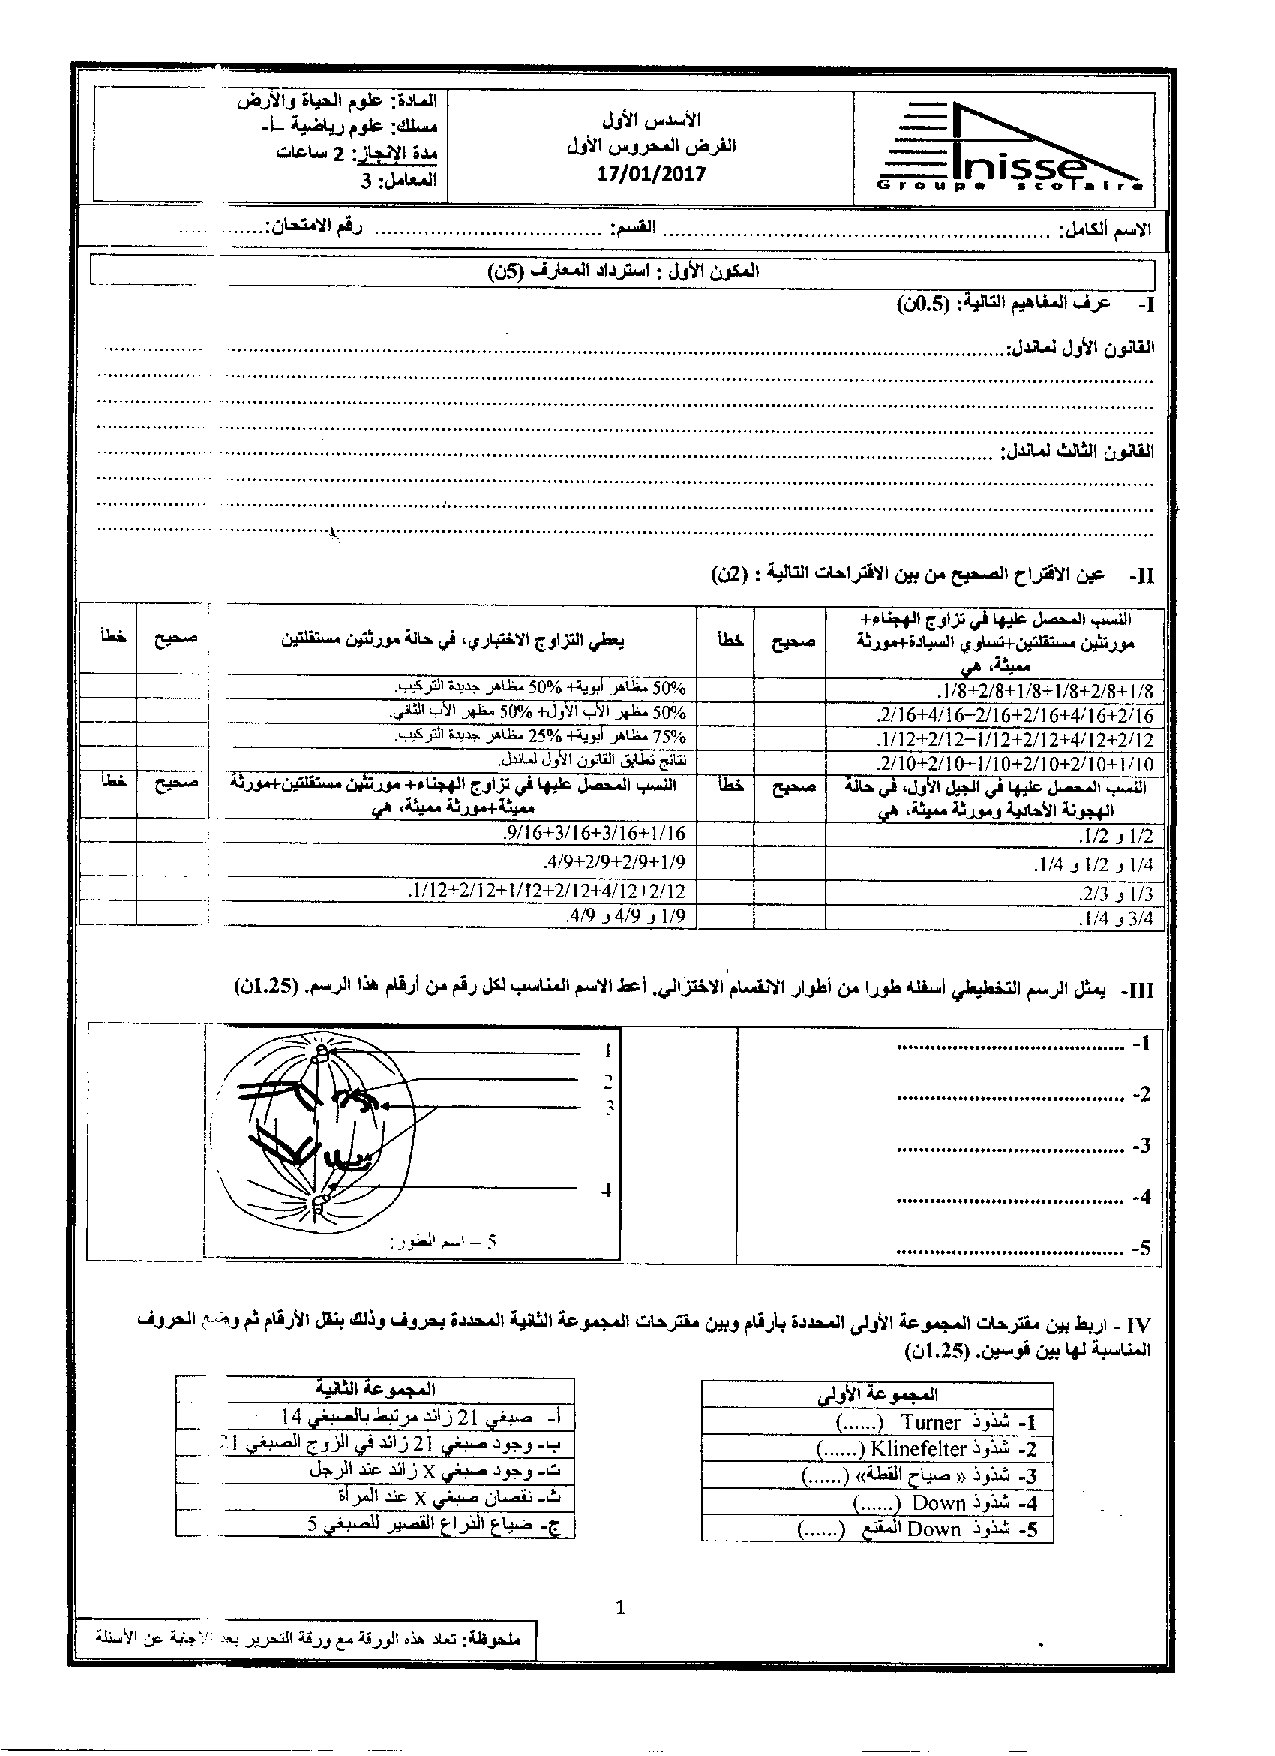 Anisse
Groupe scolaire
الأسدس الأول
الفرض المحروس الأول
17/01/2017
المادة: علوم الحياة والأرض
مسلك: علوم رياضية -أ-
مدة الإنجاز: 2 ساعات
المعامل: 3
الاسم الكامل: ........................ القسم: ........................ رقم الامتحان: ............
المكون الأول : استرداد المعارف (5ن)
I- عرف المفاهيم التالية: (0.5ن)
القانون الأول لماندل: ........................
القانون الثالث لماندل: ........................
II- عين الاقتراح الصحيح من بين الاقتراحات التالية : (2ن)
النسب المحصل عليها في تزاوج الهجناء+
مورثتين مستقلتين+تساوي السيادة+مورثة
مميتة، هي
صحيح
خطأ
يعطي التزاوج الاختباري، في حالة مورثتين مستقلتين
صحيح
خطأ
1/8+2/8+1/8+1/8+2/8+1/8.
50% مظاهر أبوية+ 50% مظاهر جديدة التركيب.
2/16+4/16+2/16+2/16+4/16+2/16.
50% مظهر الأب الأول+ 50% مظهر الأب الثاني.
1/12+2/12+1/12+2/12+4/12+2/12.
75% مظاهر أبوية+ 25% مظاهر جديدة التركيب.
2/10+2/10+1/10+2/10+2/10+1/10.
نتائج تطابق القانون الأول لماندل.
النسب المحصل عليها في الجيل الأول، في حالة
الهجونة الأحادية ومورثة مميتة، هي
صحيح
خطأ
النسب المحصل عليها في تزاوج الهجناء+ مورثتين مستقلتين+مورثة
مميتة+مورثة مميتة، هي
صحيح
خطأ
1/2 و 1/2.
9/16+3/16+3/16+1/16.
1/4 و 1/2 و 1/4.
4/9+2/9+2/9+1/9.
1/3 و 2/3.
1/12+2/12+1/12+2/12+4/12+2/12.
3/4 و 1/4.
1/9 و 4/9 و 4/9.
III- يمثل الرسم التخطيطي أسفله طورا من أطوار الانقسام الاختزالي. أعط الاسم المناسب لكل رقم من أرقام هذا الرسم. (1.25ن)
1- ........................
2- ........................
3- ........................
4- ........................
5- ........................
1
2
3
4
5 – اسم الطور:
IV - اربط بين مقترحات المجموعة الأولى المحددة بأرقام وبين مقترحات المجموعة الثانية المحددة بحروف وذلك بنقل الأرقام ثم وضع الحروف
المناسبة لها بين قوسين. (1.25ن)
المجموعة الأولى
1- شذوذ Turner (......)
2- شذوذ Klinefelter (......)
3- شذوذ « صياح القطة» (......)
4- شذوذ Down (......)
5- شذوذ Down المقنع (......)
المجموعة الثانية
أ- صبغي 21 زائد مرتبط بالصبغي 14
ب- وجود صبغي 21 زائد في الزوج الصبغي 21
ت- وجود صبغي X زائد عند الرجل
ث- نقصان صبغي X عند المرأة
ج- ضياع الذراع القصير للصبغي 5
1
ملحوظة: تعاد هذه الورقة مع ورقة التحرير بعد الاجابة عن الأسئلة